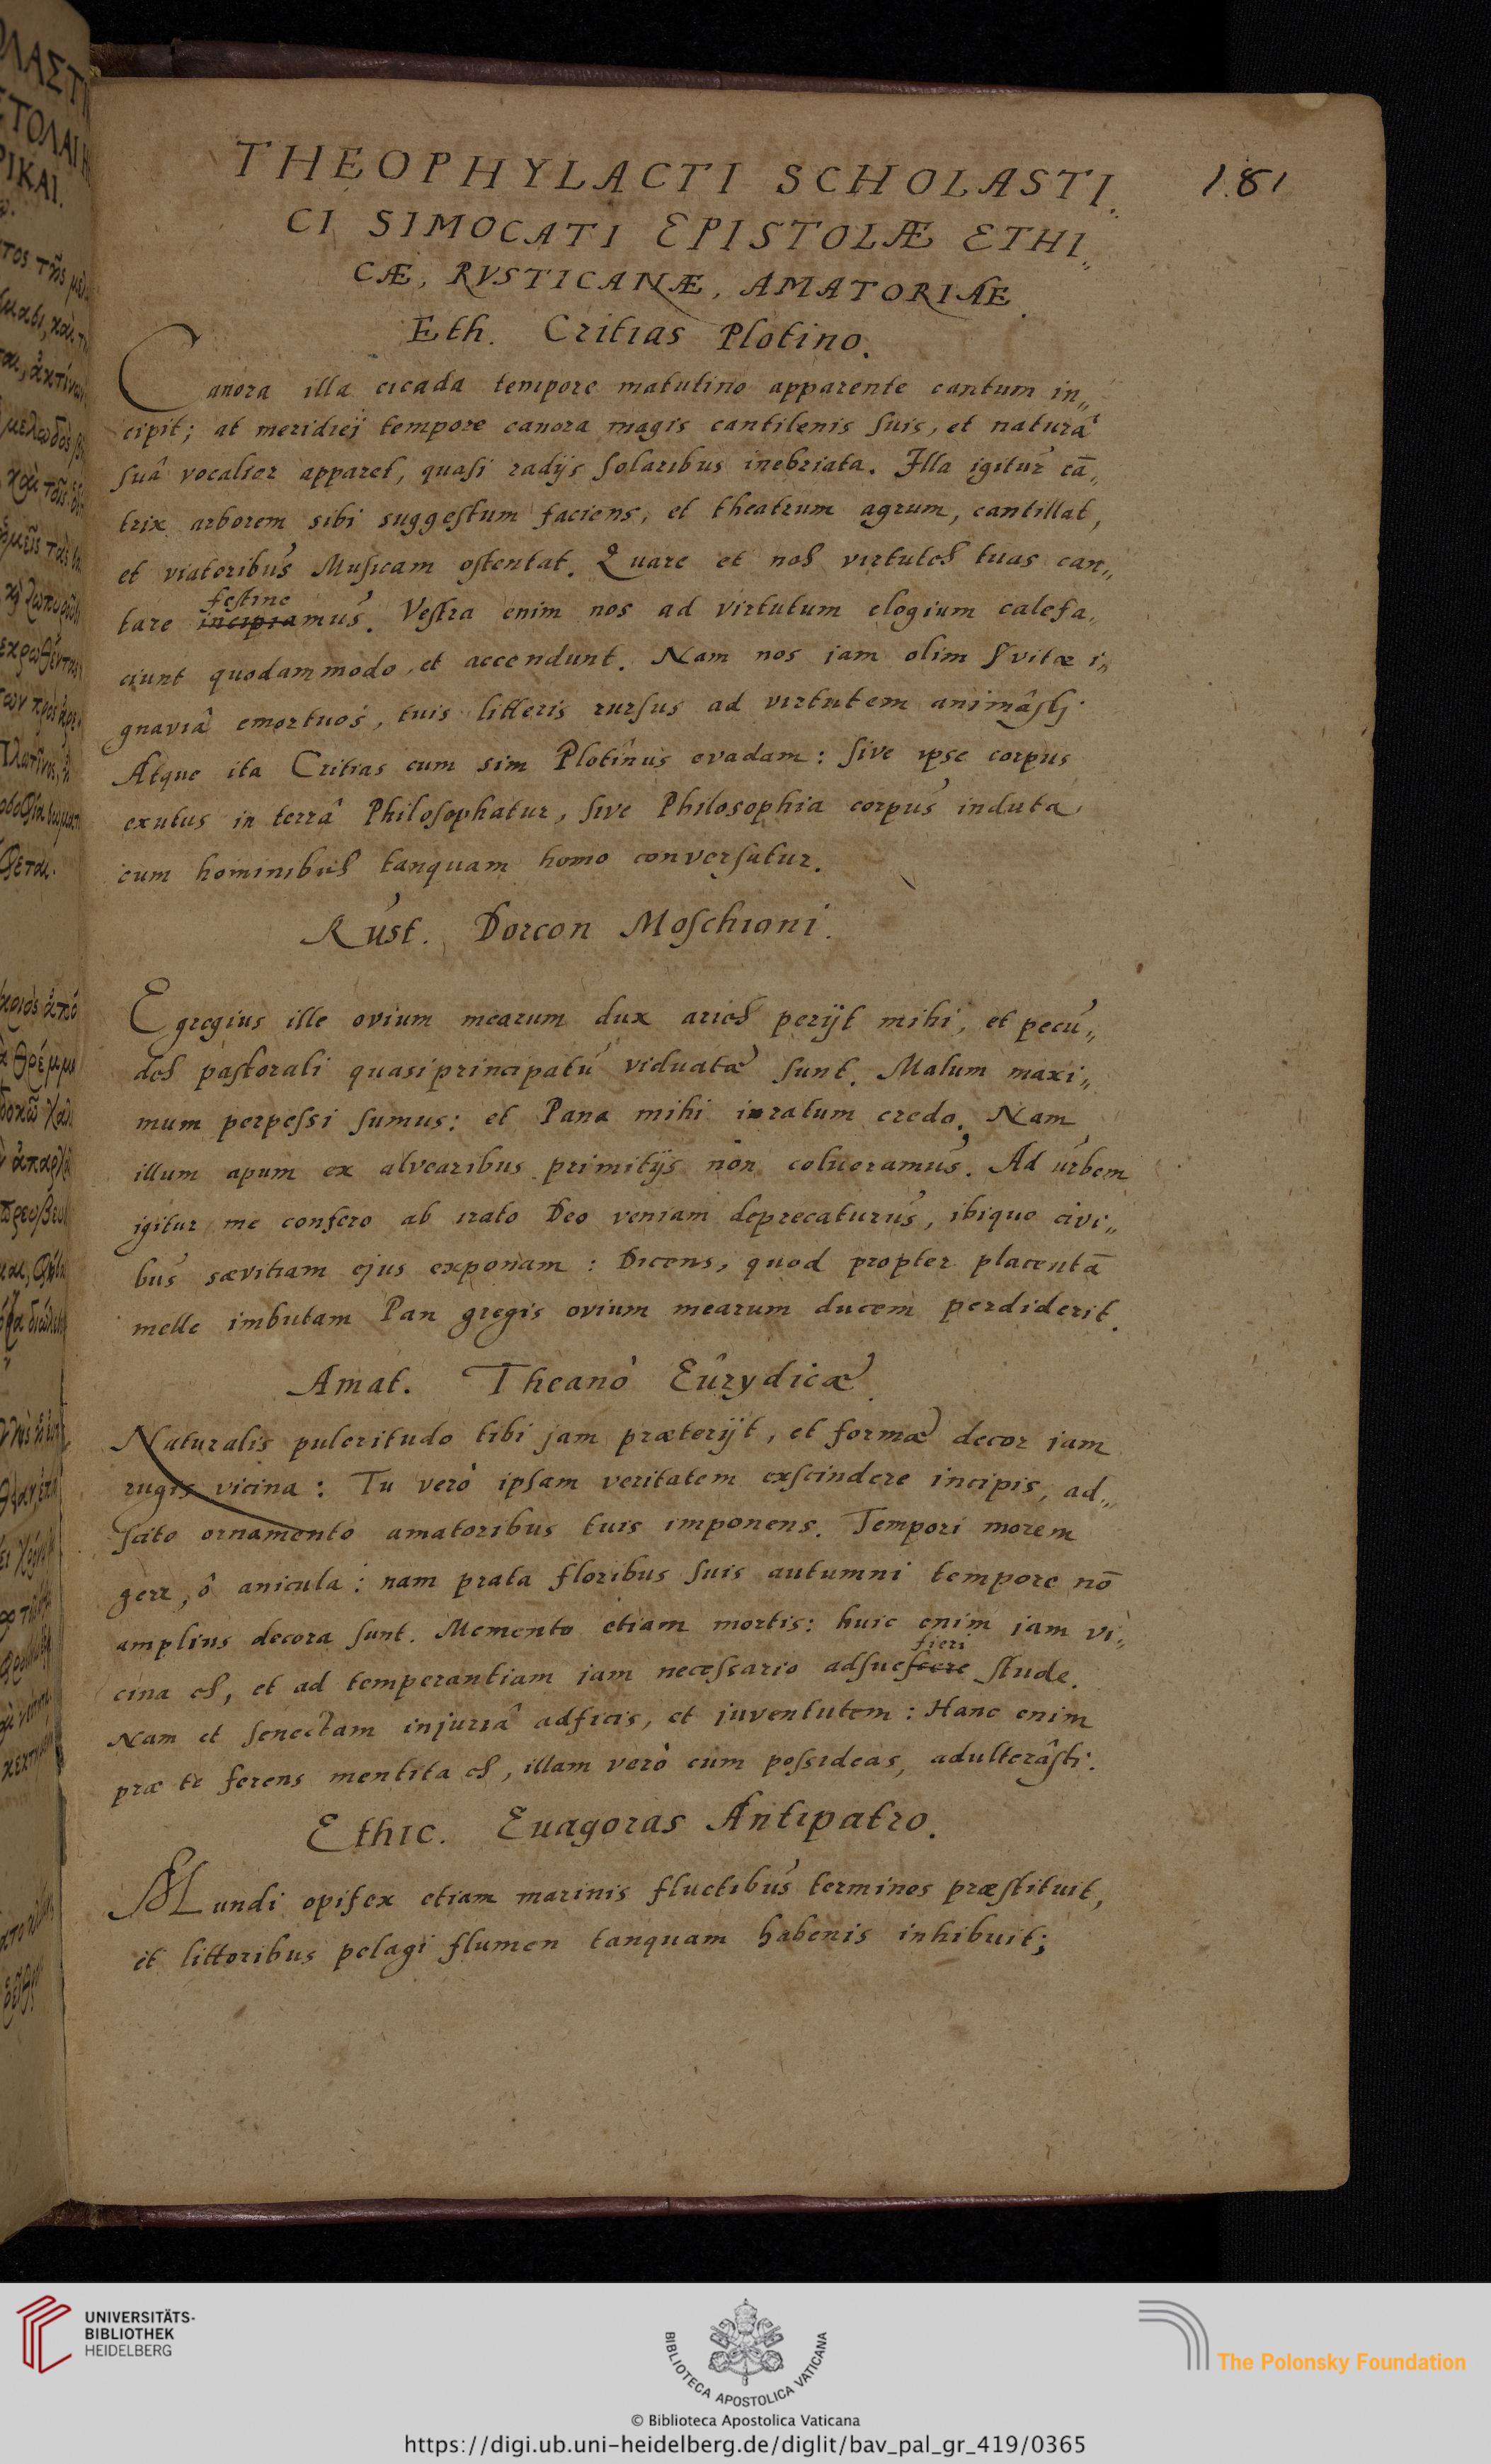 THEOPHYLACTI SCHOLASTI„
181
CI SIMOCATI EPISTOLÆ ETHI„
CÆ, RVSTICANÆ, AMATORIAE.
Eth. Critias Plotino.
Canora illa cicada tempore matutino apparente cantum in„
cipit; at meridiei tempore canora magis cantilenis ſuis, et naturâ
ſuâ vocalior apparet, quaſi radijs ſolaribus inebriata. Illa igitur cā„
trix arborem sibi suggeſtum faciens, et theatrum agrum, cantillat,
et viatoribus Muſicam oſtentat. Quare et nos virtutes tuas can„
feſtine
tare incipiamus. Veſtra enim nos ad virtutum elogium calefa„
ciunt quodammodo, et accendunt. Nam nos jam olim vitæ i„
gnaviâ emortuos, tuis litteris rurſus ad virtutem animâſti.
Atque ita Critias cum sim Plotinus evadam: ſive ipse corpus
exutus in terrâ Philoſophatur, ſive Philosophia corpus induta
cum hominibus tanquam homo converſatur.
Rust. Dorcon Moſchioni.
Egregius ille ovium mearum dux aries perijt mihi, et pecu„
des paſtorali quasi principatu viduatæ ſunt. Malum maxi„
mum perpeſsi ſumus: et Pana mihi iratum credo. Nam
illum apum ex alvearibus primitijs non colueramus. Ad urbem
igitur me confero ab irato Deo veniam deprecaturus, ibique civi„
bus sævitiam ejus exponam: Dicens, quod propter placentā
melle imbutam Pan gregis ovium mearum ducem perdiderit.
Amat. Theanò Eurydicæ.
Naturalis pulcritudo tibi jam præterijt, et formæ decor jam
rugis vicina: Tu verò ipſam veritatem exſcindere incipis, ad„
ſcito ornamento amatoribus tuis imponens. Tempori morem
gere, ô anicula: nam prata floribus ſuis autumni tempore nō
amplius decora ſunt. Memento etiam mortis: huic enim jam vi„
fieri
cina es, et ad temperantiam jam neceſsario adſueſcere ſtude.
Nam et ſenectam injuriâ adficis, et juventutem: Hanc enim
præ te ferens mentita es, illam verò cum poſsideas, adulterâſti.
Ethic. Euagoras Antipatro.
Mundi opifex etiam marinis fluctibus terminos præſtituit,
et littoribus pelagi flumen tanquam habenis inhibuit;
UNIVERSITÄTS-
BIBLIOTHEK
HEIDELBERG
BIBLIOTECA APOSTOLICA VATICANA
The Polonsky Foundation
© Biblioteca Apostolica Vaticana
https://digi.ub.uni-heidelberg.de/diglit/bav_pal_gr_419/0365